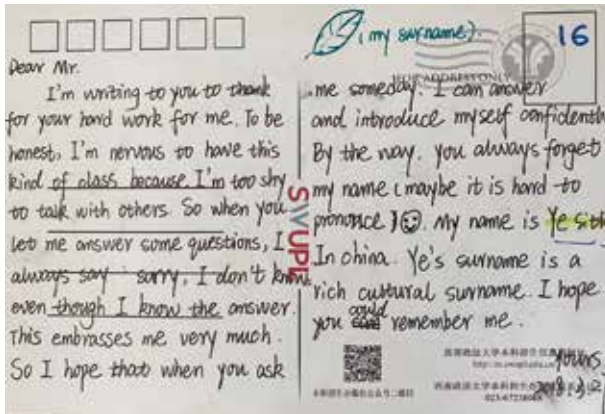 Dear Mr.
I'm writing to you to thank
for your hard work for me. To be
honest, I'm nervous to have this
kind of class because I'm too shy
to talk with others. So when you
let me answer some questions, I
always say sorry, I don't know
even though I know the answer.
This embrasses me very much.
So I hope that when you ask
(my surname).
16
ADDRESS ONLY
me someday. I can answer
and introduce myself confidently
By the way. you always forget
my name (maybe it is hard to
pronounce)
My name is Ye
In china. Ye's surname is a
rich cultural surname. I hope
you could remember me.
Yours,
SWUPL
西南政法大学本科招生
023-67258